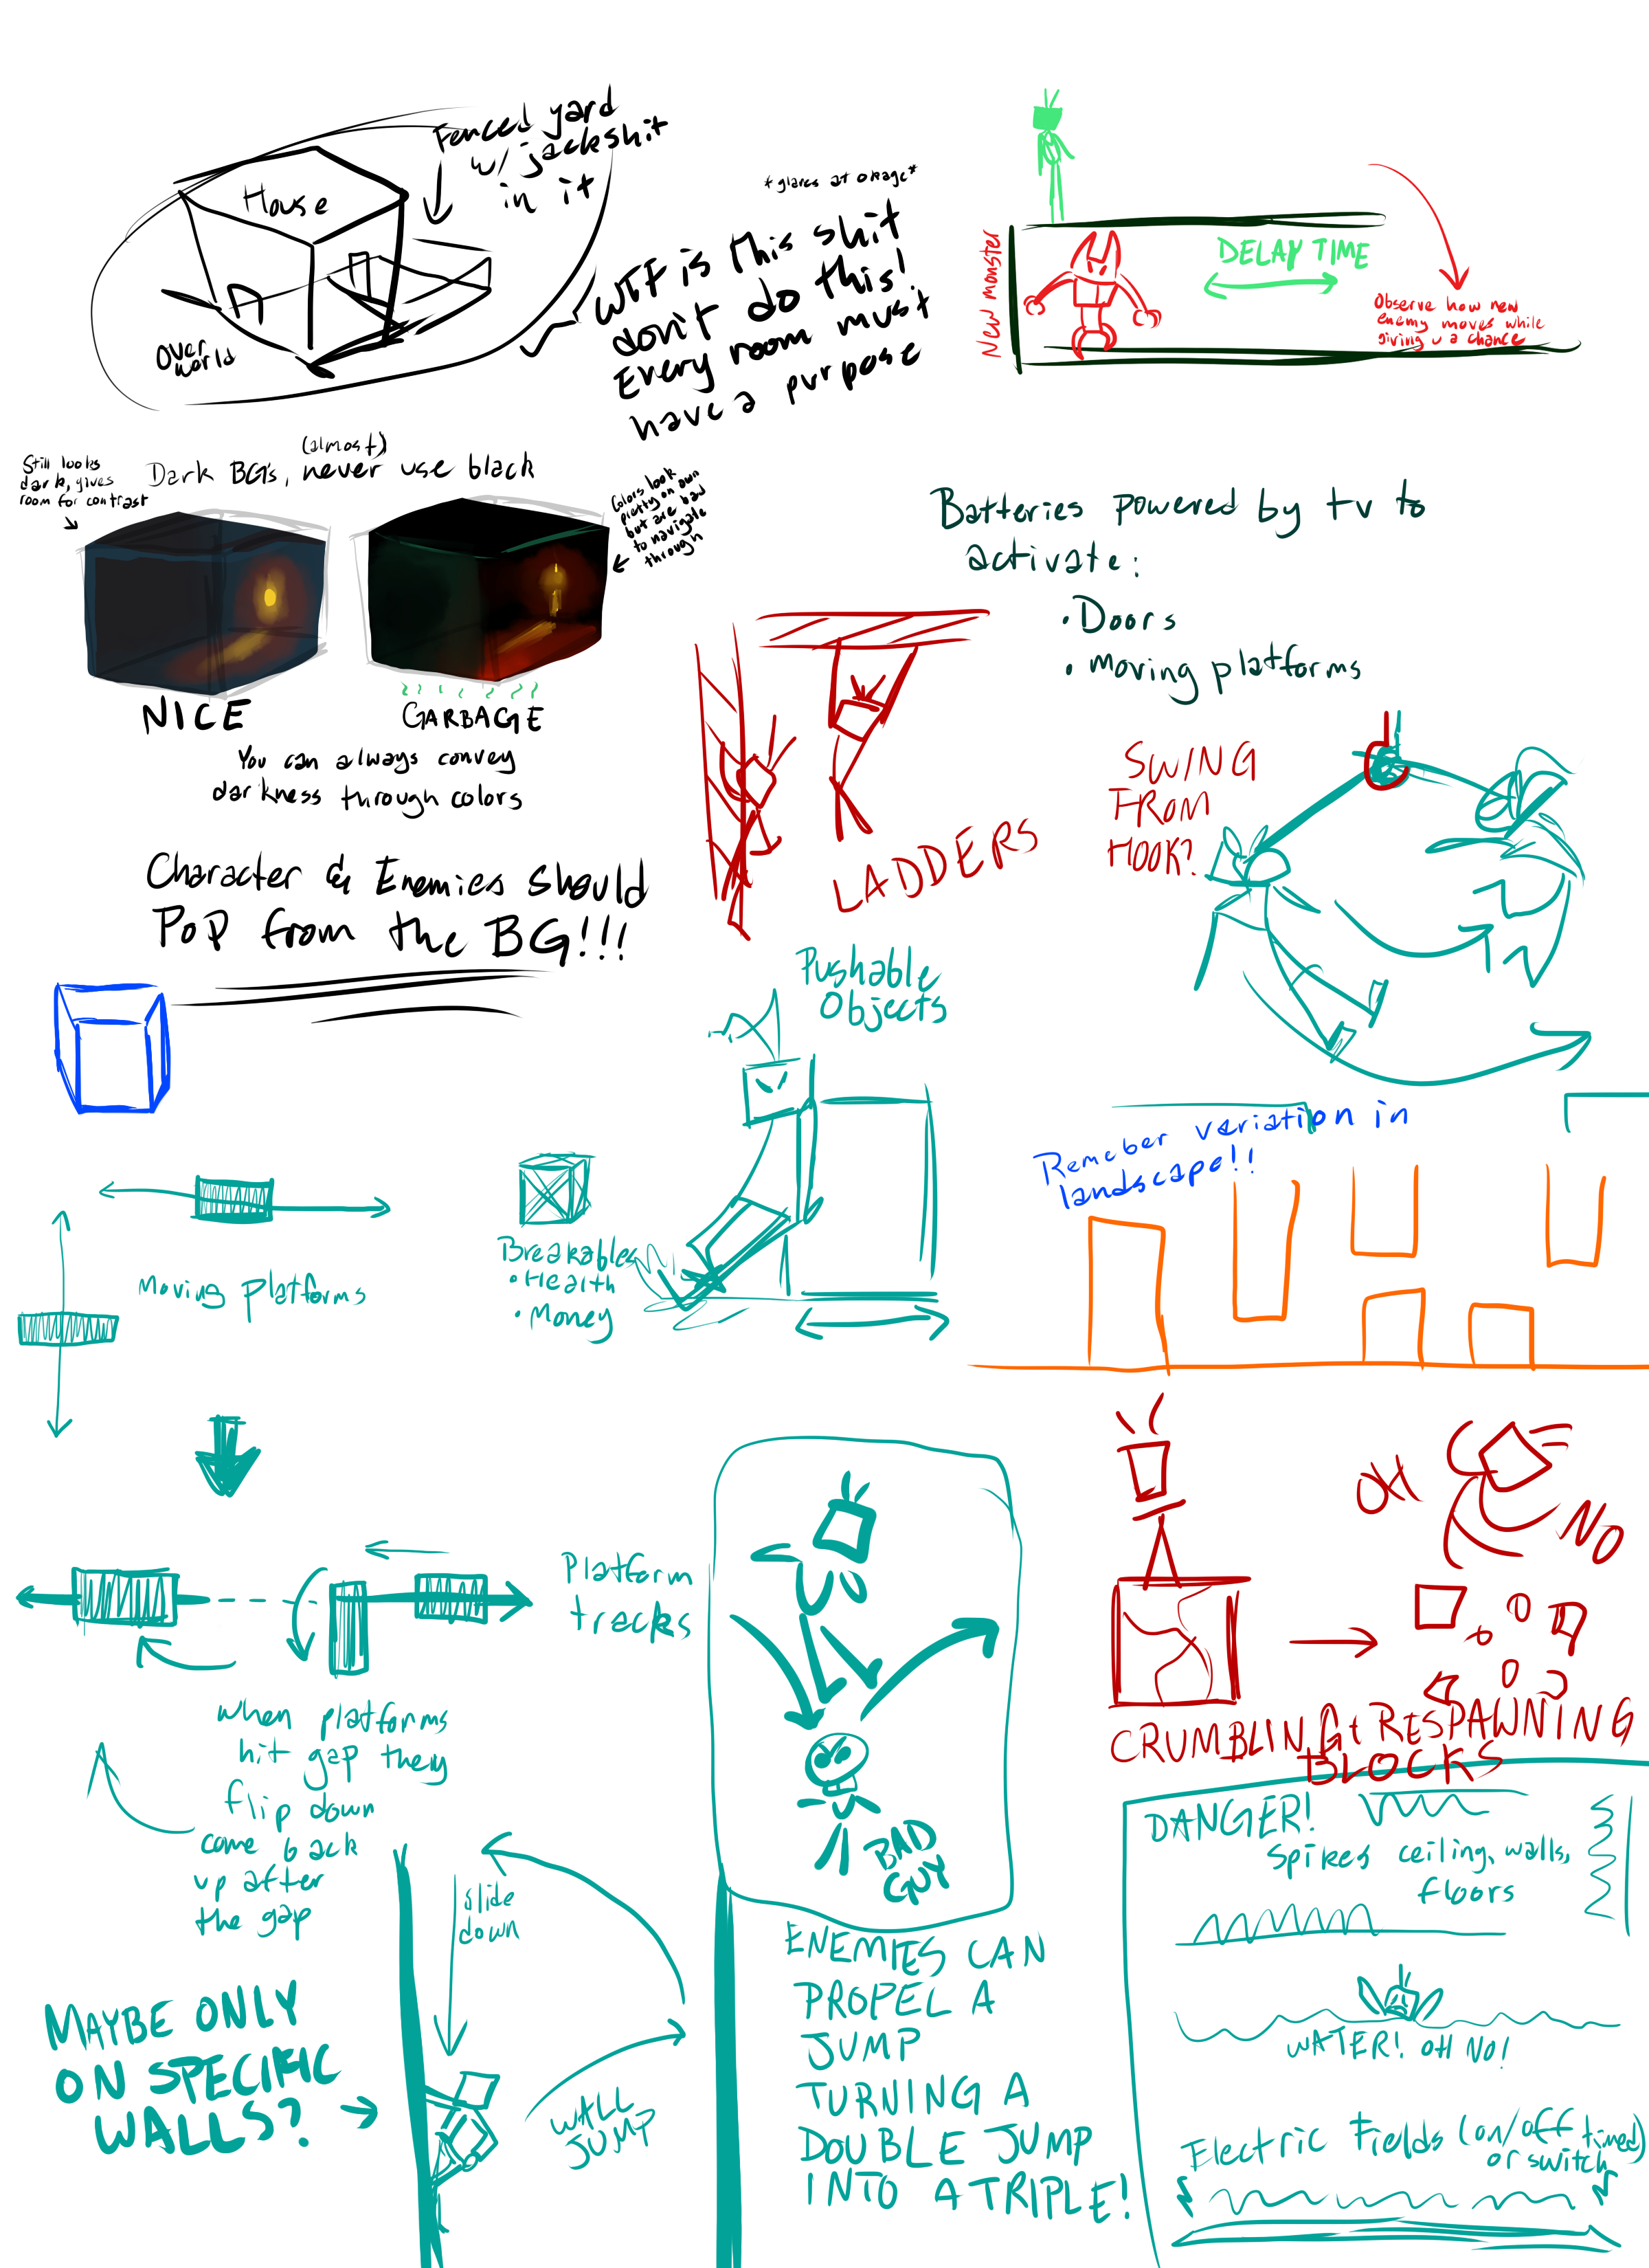 Fenced yard
w/ jackshit
in it
House
Over
world
*glares at omage*
WTF is this shit
don't do this!
Every room must
have a purpose
New monster
DELAY TIME
Observe how new
enemy moves while
giving u a chance
Still looks
dark, gives
room for contrast
Dark BG's, (almost) never use black
Colors look
pretty on own
but are bad
to navigate
through
NICE
GARBAGE
You can always convey
darkness through colors
Character & Enemies should
POP from the BG!!!
Batteries powered by tv to
activate:
• Doors
• moving platforms
LADDERS
SWING
FROM
HOOK?
Pushable
Objects
Remeber variation in
landscape!!
Moving Platforms
Breakables
• Health
• Money
Platform
tracks
when platforms
hit gap they
flip down
come back
up after
the gap
OH
NO
CRUMBLING & RESPAWNING
BLOCKS
BAD
GUY
ENEMIES CAN
PROPEL A
JUMP
TURNING A
DOUBLE JUMP
INTO A TRIPLE!
slide
down
WALL
JUMP
MAYBE ONLY
ON SPECIFIC
WALLS?
DANGER!
Spikes ceiling, walls,
floors
WATER! OH NO!
Electric Fields (on/off timed)
or switch